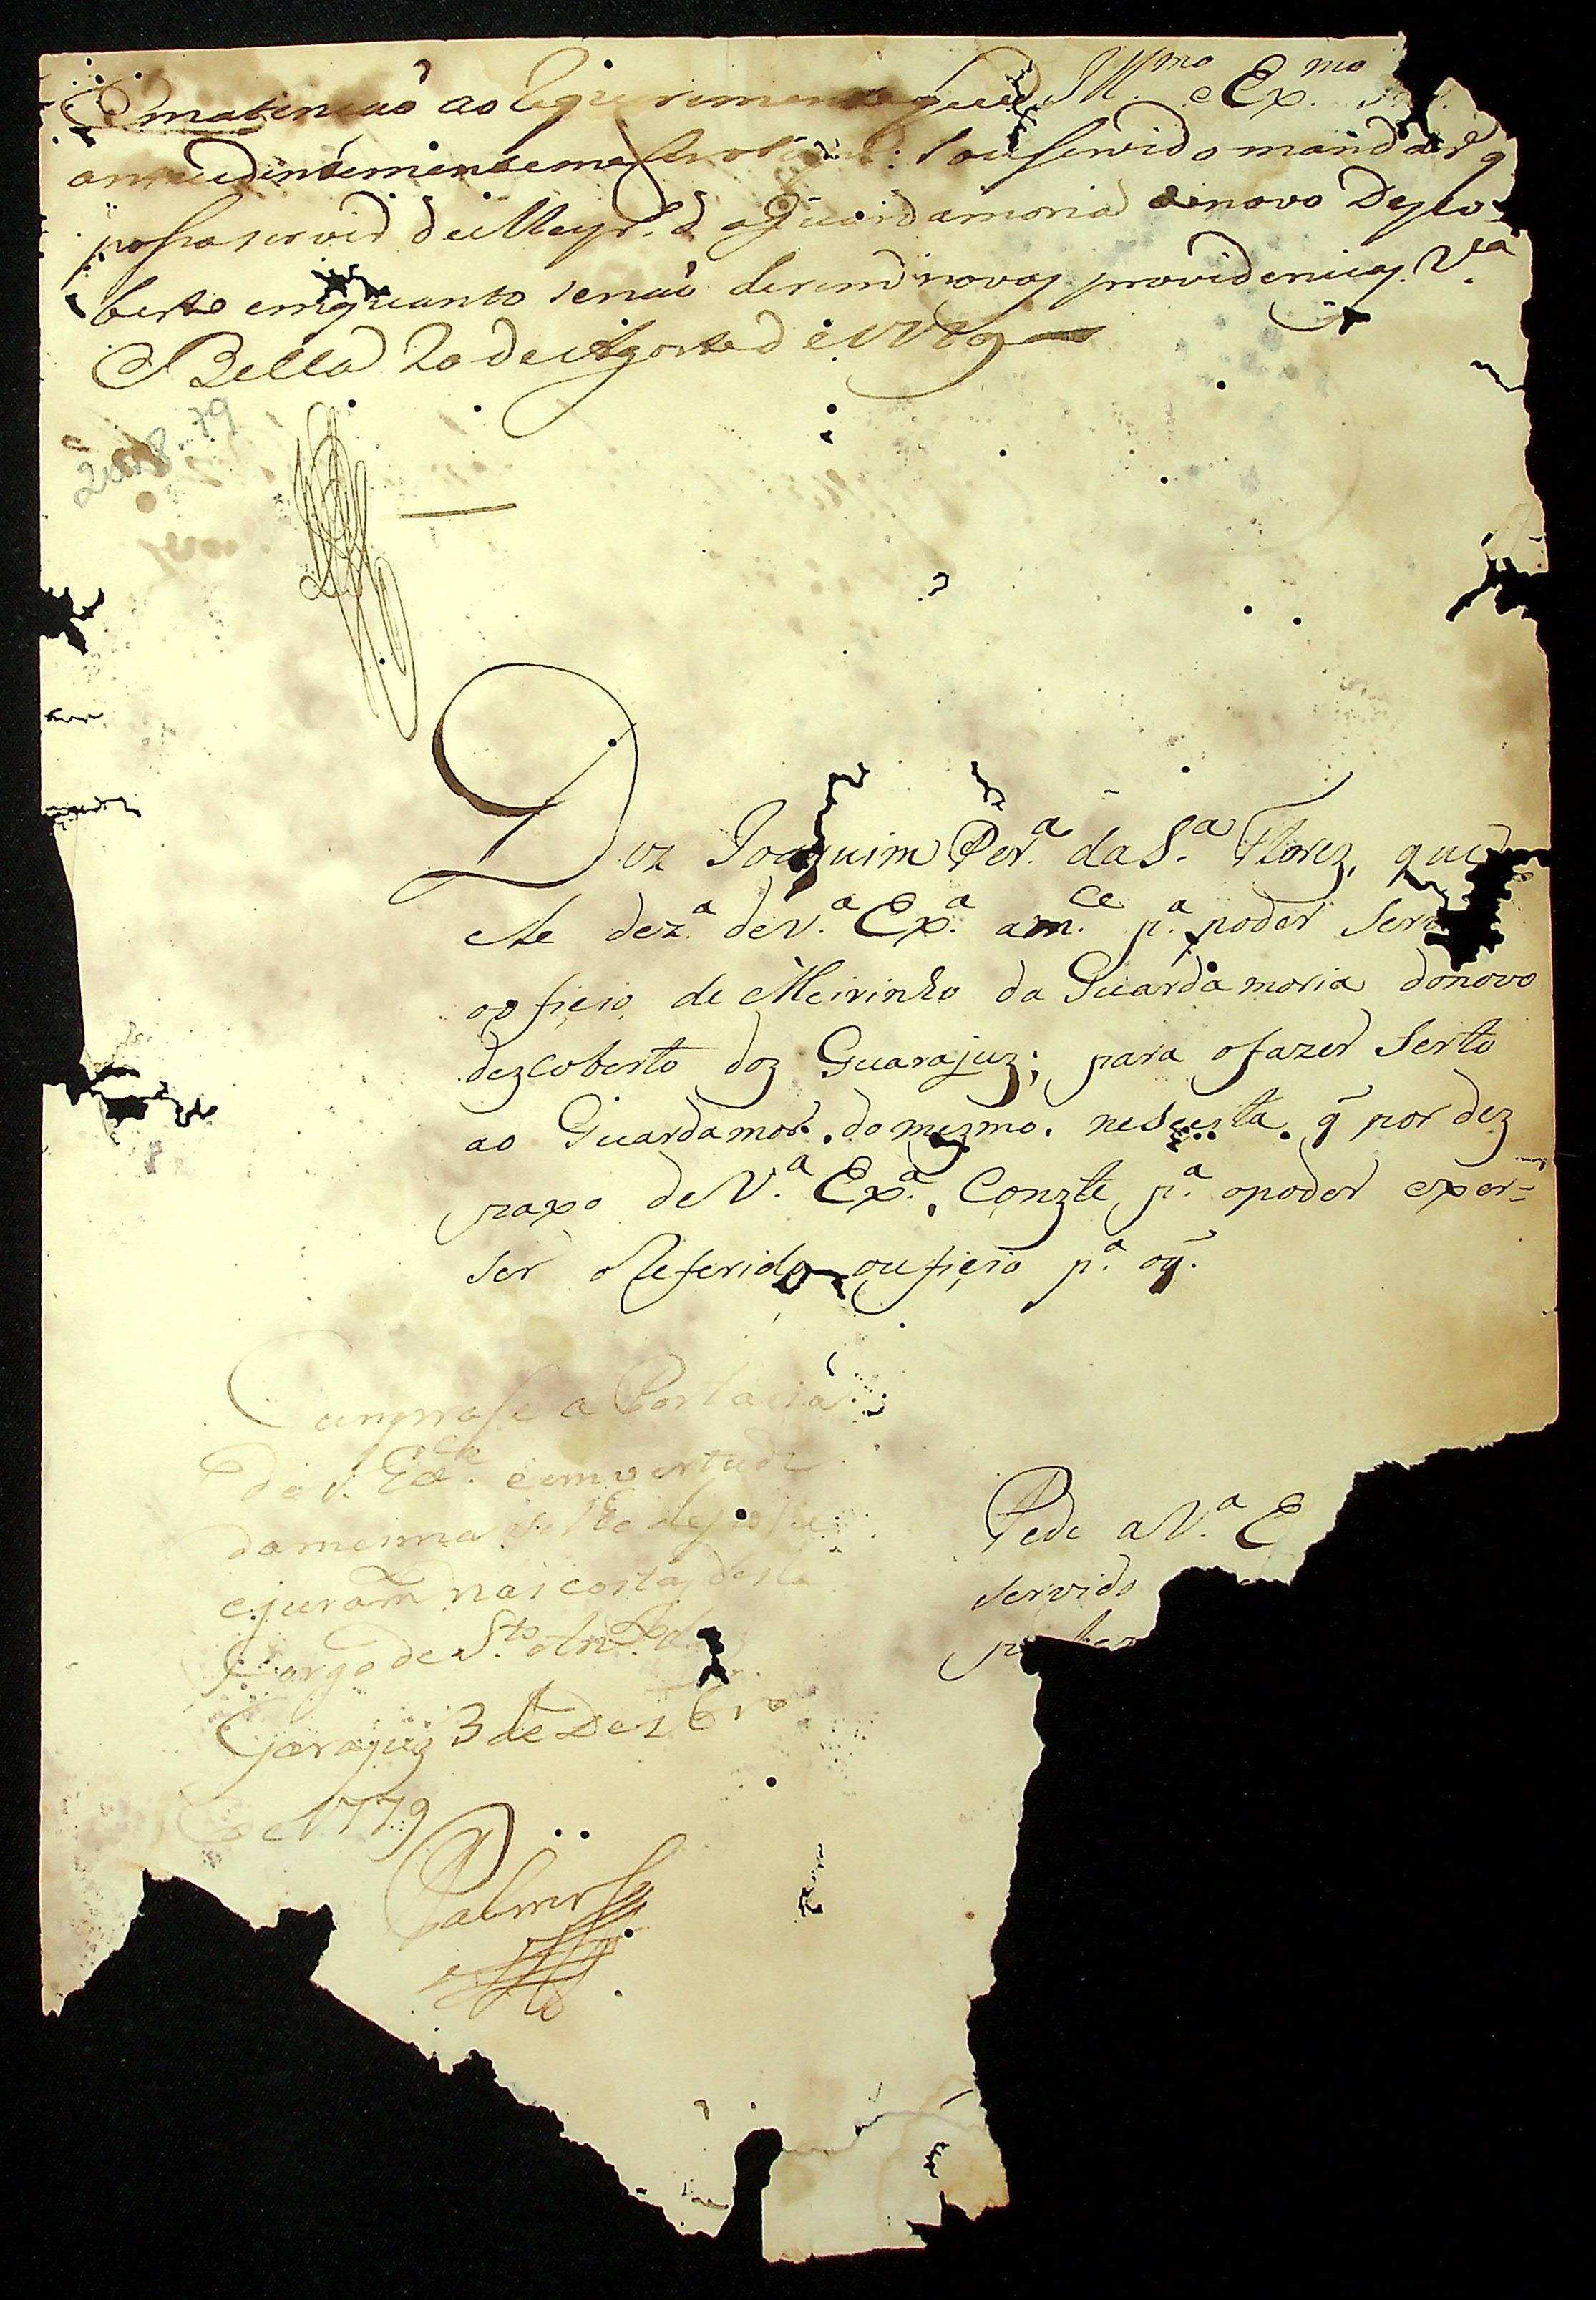 Ill.mo e Ex.mo
Em atencaõ ao Requerimento que
mandar q
possa servir de Meyr.o da Guardamoria do novo Desco-
berto emquanto senaõ derem novas providencias. V.a
Bella 20 de Agosto de 1779
20.8.79
Diz Joaquim Per.a da S.a Florez, que
elle dez.a de V.a Ex.a a m.ce p.a poder Serv
o ofiçio de Meirinho da Guardamoria do novo
dezcoberto doz Guarajuz; para o fazer Serto
ao Guardamor do mezmo. neseçita q̃ por dez
paxo de V.a Ex.a, Conzte p.a o poder exer=
ser o Referido oufiçio p.a oq̃.
Pede a V.a E
servido
Cumprase a Portaria
de S. Ex.ce e em vertude
da mesma se lhe de posse
e juram.to nas costas desta
Corgo de S.to An.to dos
Garajuz 3 de Dezbro
de 1779